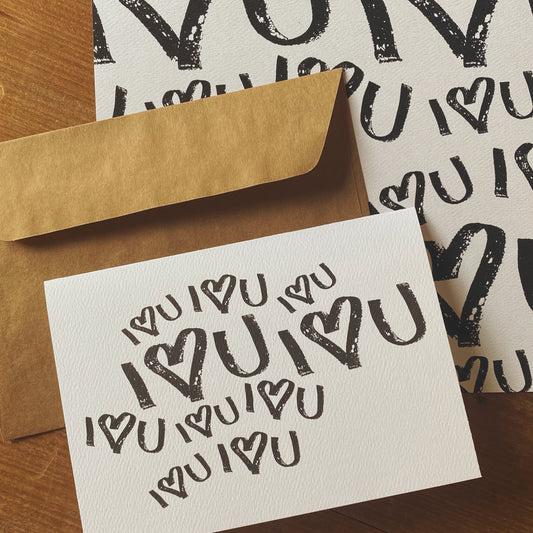 I ♥ U
I ♥ U I ♥ U
I ♥ U
I ♥ U I ♥ U I ♥ U
I ♥ U I ♥ U
I ♥ U I ♥ U I ♥ U
I ♥ U I ♥ U